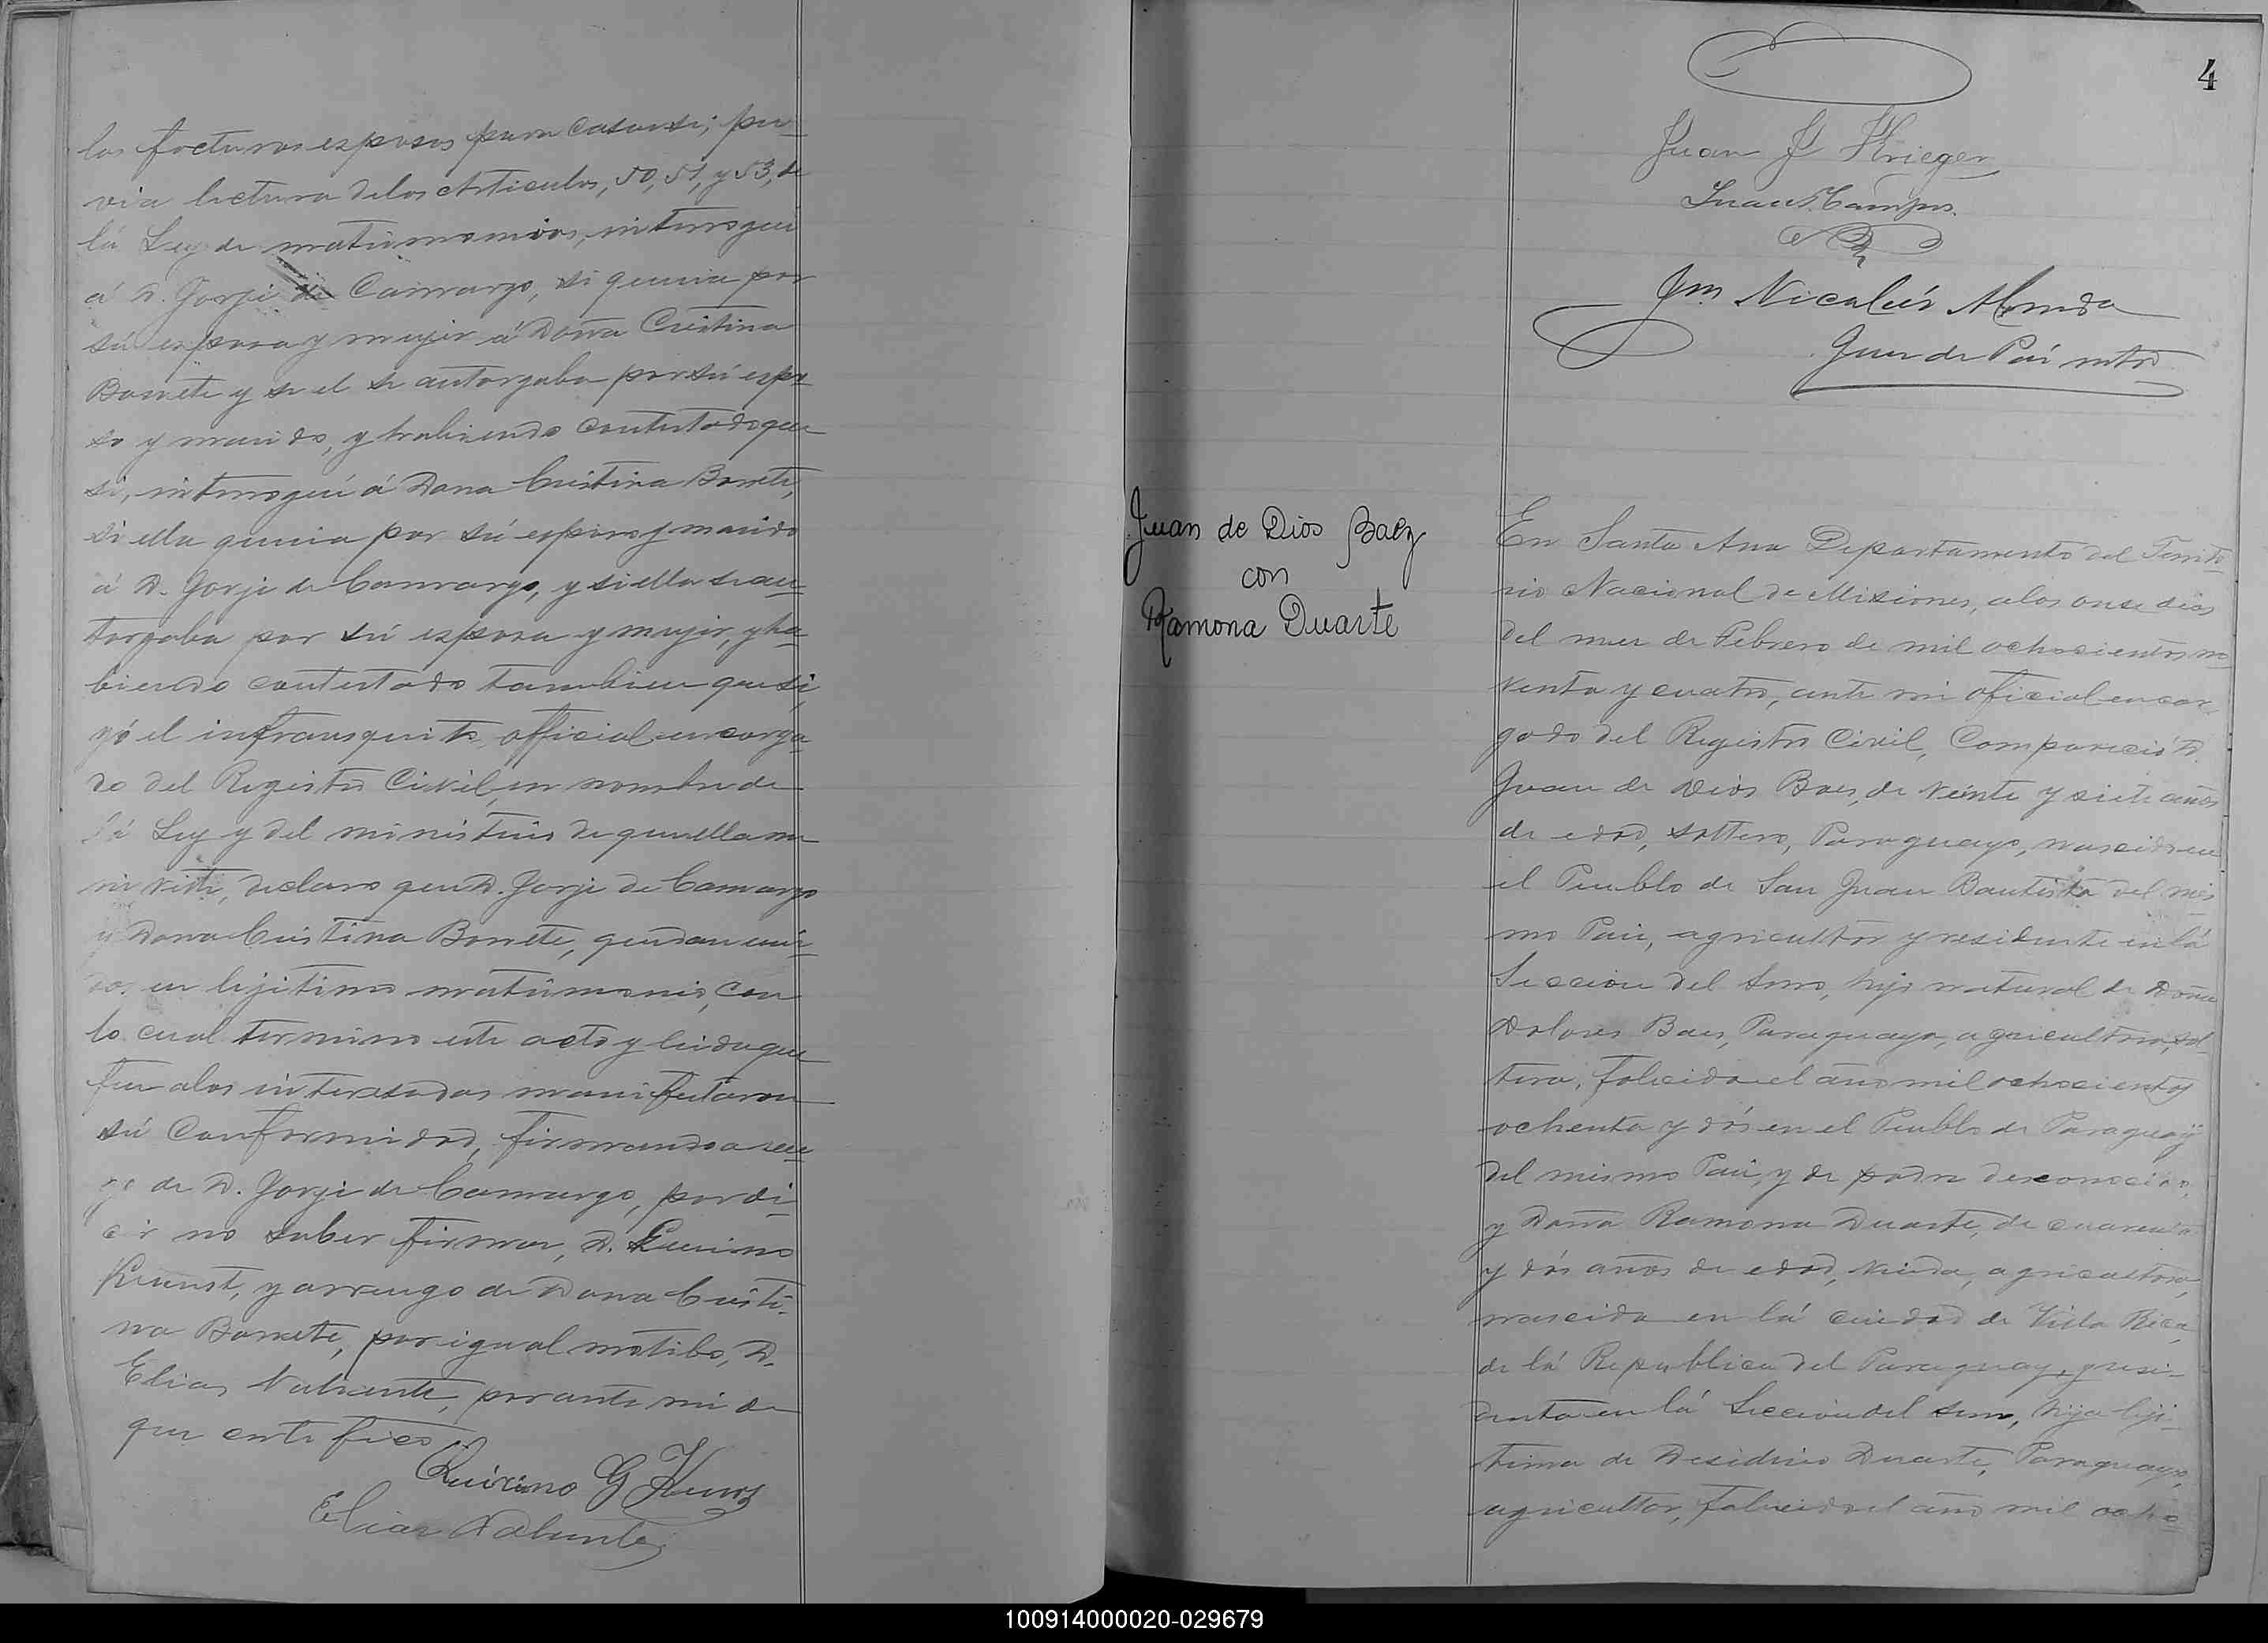 los foctuross esposos para casarse; pre-
via lectura delos Articulos, 50, 51, y 53, de
lá Ley de matrimonios, interrogué
á D. Jorje de Camargo, si queria por
sú esposa y mujer á Doña Cristina
Bonete y si el se autorgaba por sú espo-
so y marido, y habiendo contestado que
si, interrogué á Dona Cristina Bonete,
si ella queria por sú esposo y marido
á D. Jorje de Camargo, y si ella se au-
torgaba por sú esposa y mujer, y ha-
biendo contestado tambien que si,
yó el infransquito, official encarga-
do del Registro Civil, en nombre de
lá Ley y del ministerio de que ella me
inviste, declaro que D. Jorje de Camargo
y Dona Cristina Bonete, quedan uni-
dos en lejitimo matrimonio, con
lo cual termino este acto y leida que
fue alos interesados manifestaron
sú Conformidad, firmando a rue-
go de D. Jorje de Camargo, por di-
cir no saber firmar, D. Quirino
Kunst, y arruego de Dona Cristi-
na Bonete, por igual motibo, D.
Elias Valiente, por ante mi de
que certifico
Quirino G Kunst
Elias Valiente
4
Juan J Krieger
Juan Campos.
Jm Nicolás Almeda
Juez de Paz
Juan de Dios Baez
con
Ramona Duarte
En Santa Ana Departamento del Territo-
rio Nacional de Misiones, alos onse dias
del mes de Febrero de mil ochocientos no-
venta y cuatro, ante mi oficial encar-
gado del Registro Civil, Compareció D.
Juan de Dios Baes, de veinte y siete años
de edad, soltero, Paraguayo, nascido en
el Pueblo de San Juan Bautista del mis-
mo Pais, agricultor y residente en lá
Seccion del, hijo natural de Doña
Dolores Baes, Paraguaya, agricultora, sol-
tera, falecida el año mil ochocientos
ochenta y dós en el Pueblo de Paraguaÿ
del mismo Pais, y de padre desconocido,
y Doña Ramona Duarte, de cuarenta
y dós años de edad, viuda, agricultora,
nascida en lá ciudad de Villa Rica,
de lá Republica del Paraguay, y resi-
denta en lá Seccion del, hija leji-
tima de Desiderio Duarte, Paraguayo,
agricultor, falecido el año mil ocho-
100914000020-029679